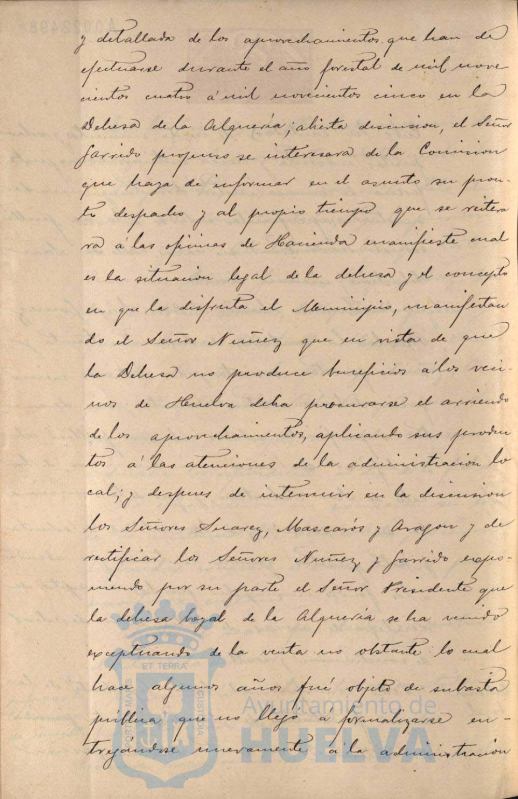 y detallada de los aprovechamientos que han de
efectuarse durante el año forestal de mil nove
cientos cuatro á mil novecientos cinco en la
Dehesa de la Alquería; abierta discusion, el Señor
Garrido propuso se interesara de la Comision
que haya de informar en el asunto su pron-
to despacho y al propio tiempo que se reitera
ra á las oficinas de Hacienda manifieste cual
es la situacion legal de la dehesa y el concepto
en que la disfruta el Municipio, manifestan
do el Señor Nuñez que en vista de que
la Dehesa no produce beneficios á los veci-
nos de Huelva debia procurarse el arriendo
de los aprovechamientos, aplicando sus produc
tos á las atenciones de la administracion lo
cal; y despues de intervenir en la discusion
los Señores Suarez, Mascarós y Aragon y de
rectificar los Señores Nuñez y Garrido expo-
niendo por su parte el Señor Presidente que
la dehesa boyal de la Alquería se ha venido
exceptuando de la venta no obstante lo cual
hace algunos años fué objeto de subasta
publica que no llegó á formalizarse en-
tregándose nuevamente á la administracion
ET TERRÆ
Ayuntamiento de
HUELVA